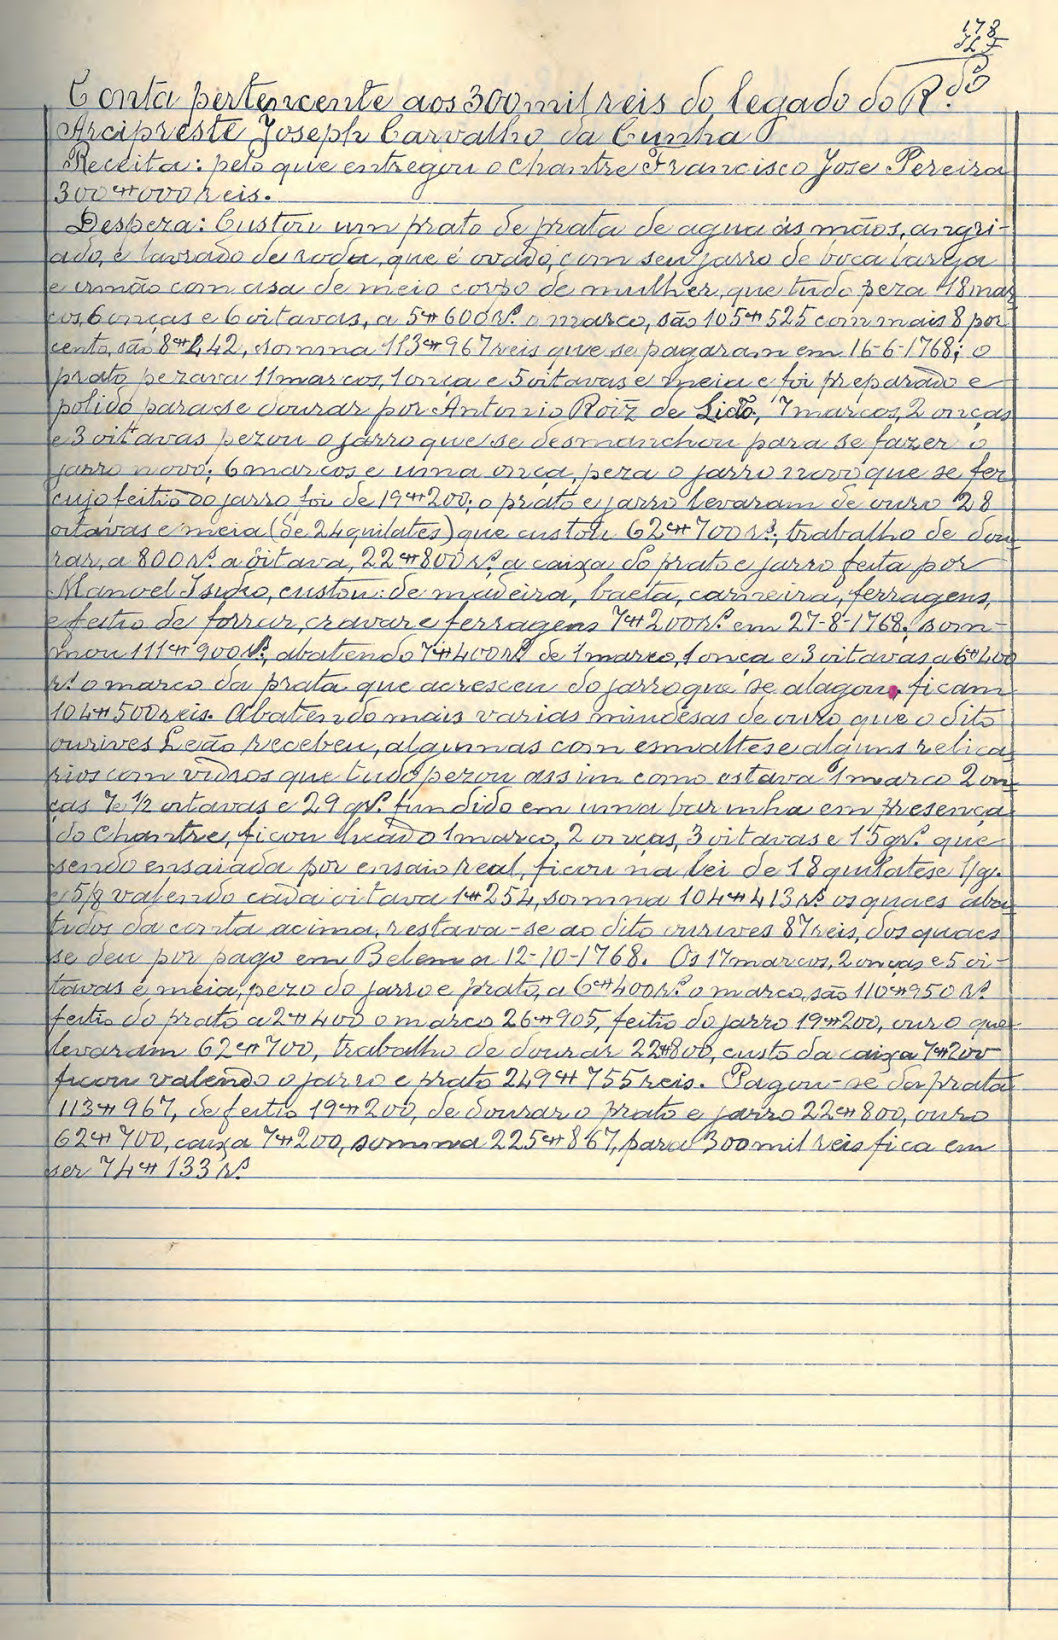 178
Conta pertencente aos 300 mil reis do legado do R.do
Arcipreste Joseph Carvalho da Cunha
Receita: pelo que entregou o Chantre Francisco Jose Pereira
300$000 reis.
Despeza: Custou um prato de prata de agua ás mãos, angri-
ado, e lavrado de roda, que é ovado, com seu jarro de boca larga
e irmão com asa de meio corpo de mulher, que tudo peza 18 mar
cos, 6 onças e 6 oitavas, a 5$600 rs. o marco, são 105$525 com mais 8 por
cento, são 8$442, somma 113$967 reis que se pagaram em 16-6-1768; o
prato pezava 11 marcos, 1 onça e 5 oitavas e meia e foi preparado e
polido para se dourar por Antonio Roiz de Leão, 7 marcos, 2 onças
e 3 oitavas pezou o jarro que se desmanchou para se fazer o
jarro novo; 6 marcos e uma onça, peza o jarro novo que se fez
cujo feitio do jarro foi de 19$200; o prato e jarro levaram de ouro 28
oitavas e meia (de 24 quilates) que custou 62$700 rs.; trabalho de dou
rar, a 800 rs. a oitava, 22$800 rs.; a caixa do prato e jarro feita por
Manoel Isidio, custou: de madeira, baeta, carneira, ferragens,
e feitio de forrar, cravar e ferragens 7$200 rs. em 27-8-1768; som-
mou 111$900 rs.; abatendo 7$400 rs. de 1 marco, 1 onça e 3 oitavas a 6$400
rs. o marco da prata que acresceu do jarro que se alagou, ficam
104$500 reis. Abatendo mais varias mindesas de ouro que o dito
ourives Leão recebeu, algumas com esmaltes e alguns relica
rios com vidros que tudo pezou assim como estava 1 marco 2 on
ças 7 e 1/2 oitavas e 29 grs. fundido em uma barinha em presença
do Chantre, ficou licado 1 marco, 2 onças, 3 oitavas e 15 grs. que
sendo ensaiada por ensaio real, ficou na lei de 18 quilates e 1/gr.
e 5/8 valendo cada oitava 1$254, somma 104$413 rs. os quaes aba
tidos da conta acima, restava-se ao dito ourives 87 reis, dos quaes
se deu por pago em Belem a 12-10-1768. Os 17 marcos, 2 onças e 5 oi-
tavas e meia, pezo do jarro e prato, a 6$400 rs. o marco, são 110$950 rs.
feitio do prato a 2$400 o marco 26$905, feitio do jarro 19$200, ouro que
levaram 62$700, trabalho de dourar 22$800, custo da caixa 7$200
ficou valendo o jarro e prato 249$755 reis. Pagou-se da prata
113$967, de feitio 19$200, de dourar o prato e jarro 22$800, ouro
62$700, caixa 7$200, somma 225$867, para 300 mil reis fica em
ser 74$133 rs.